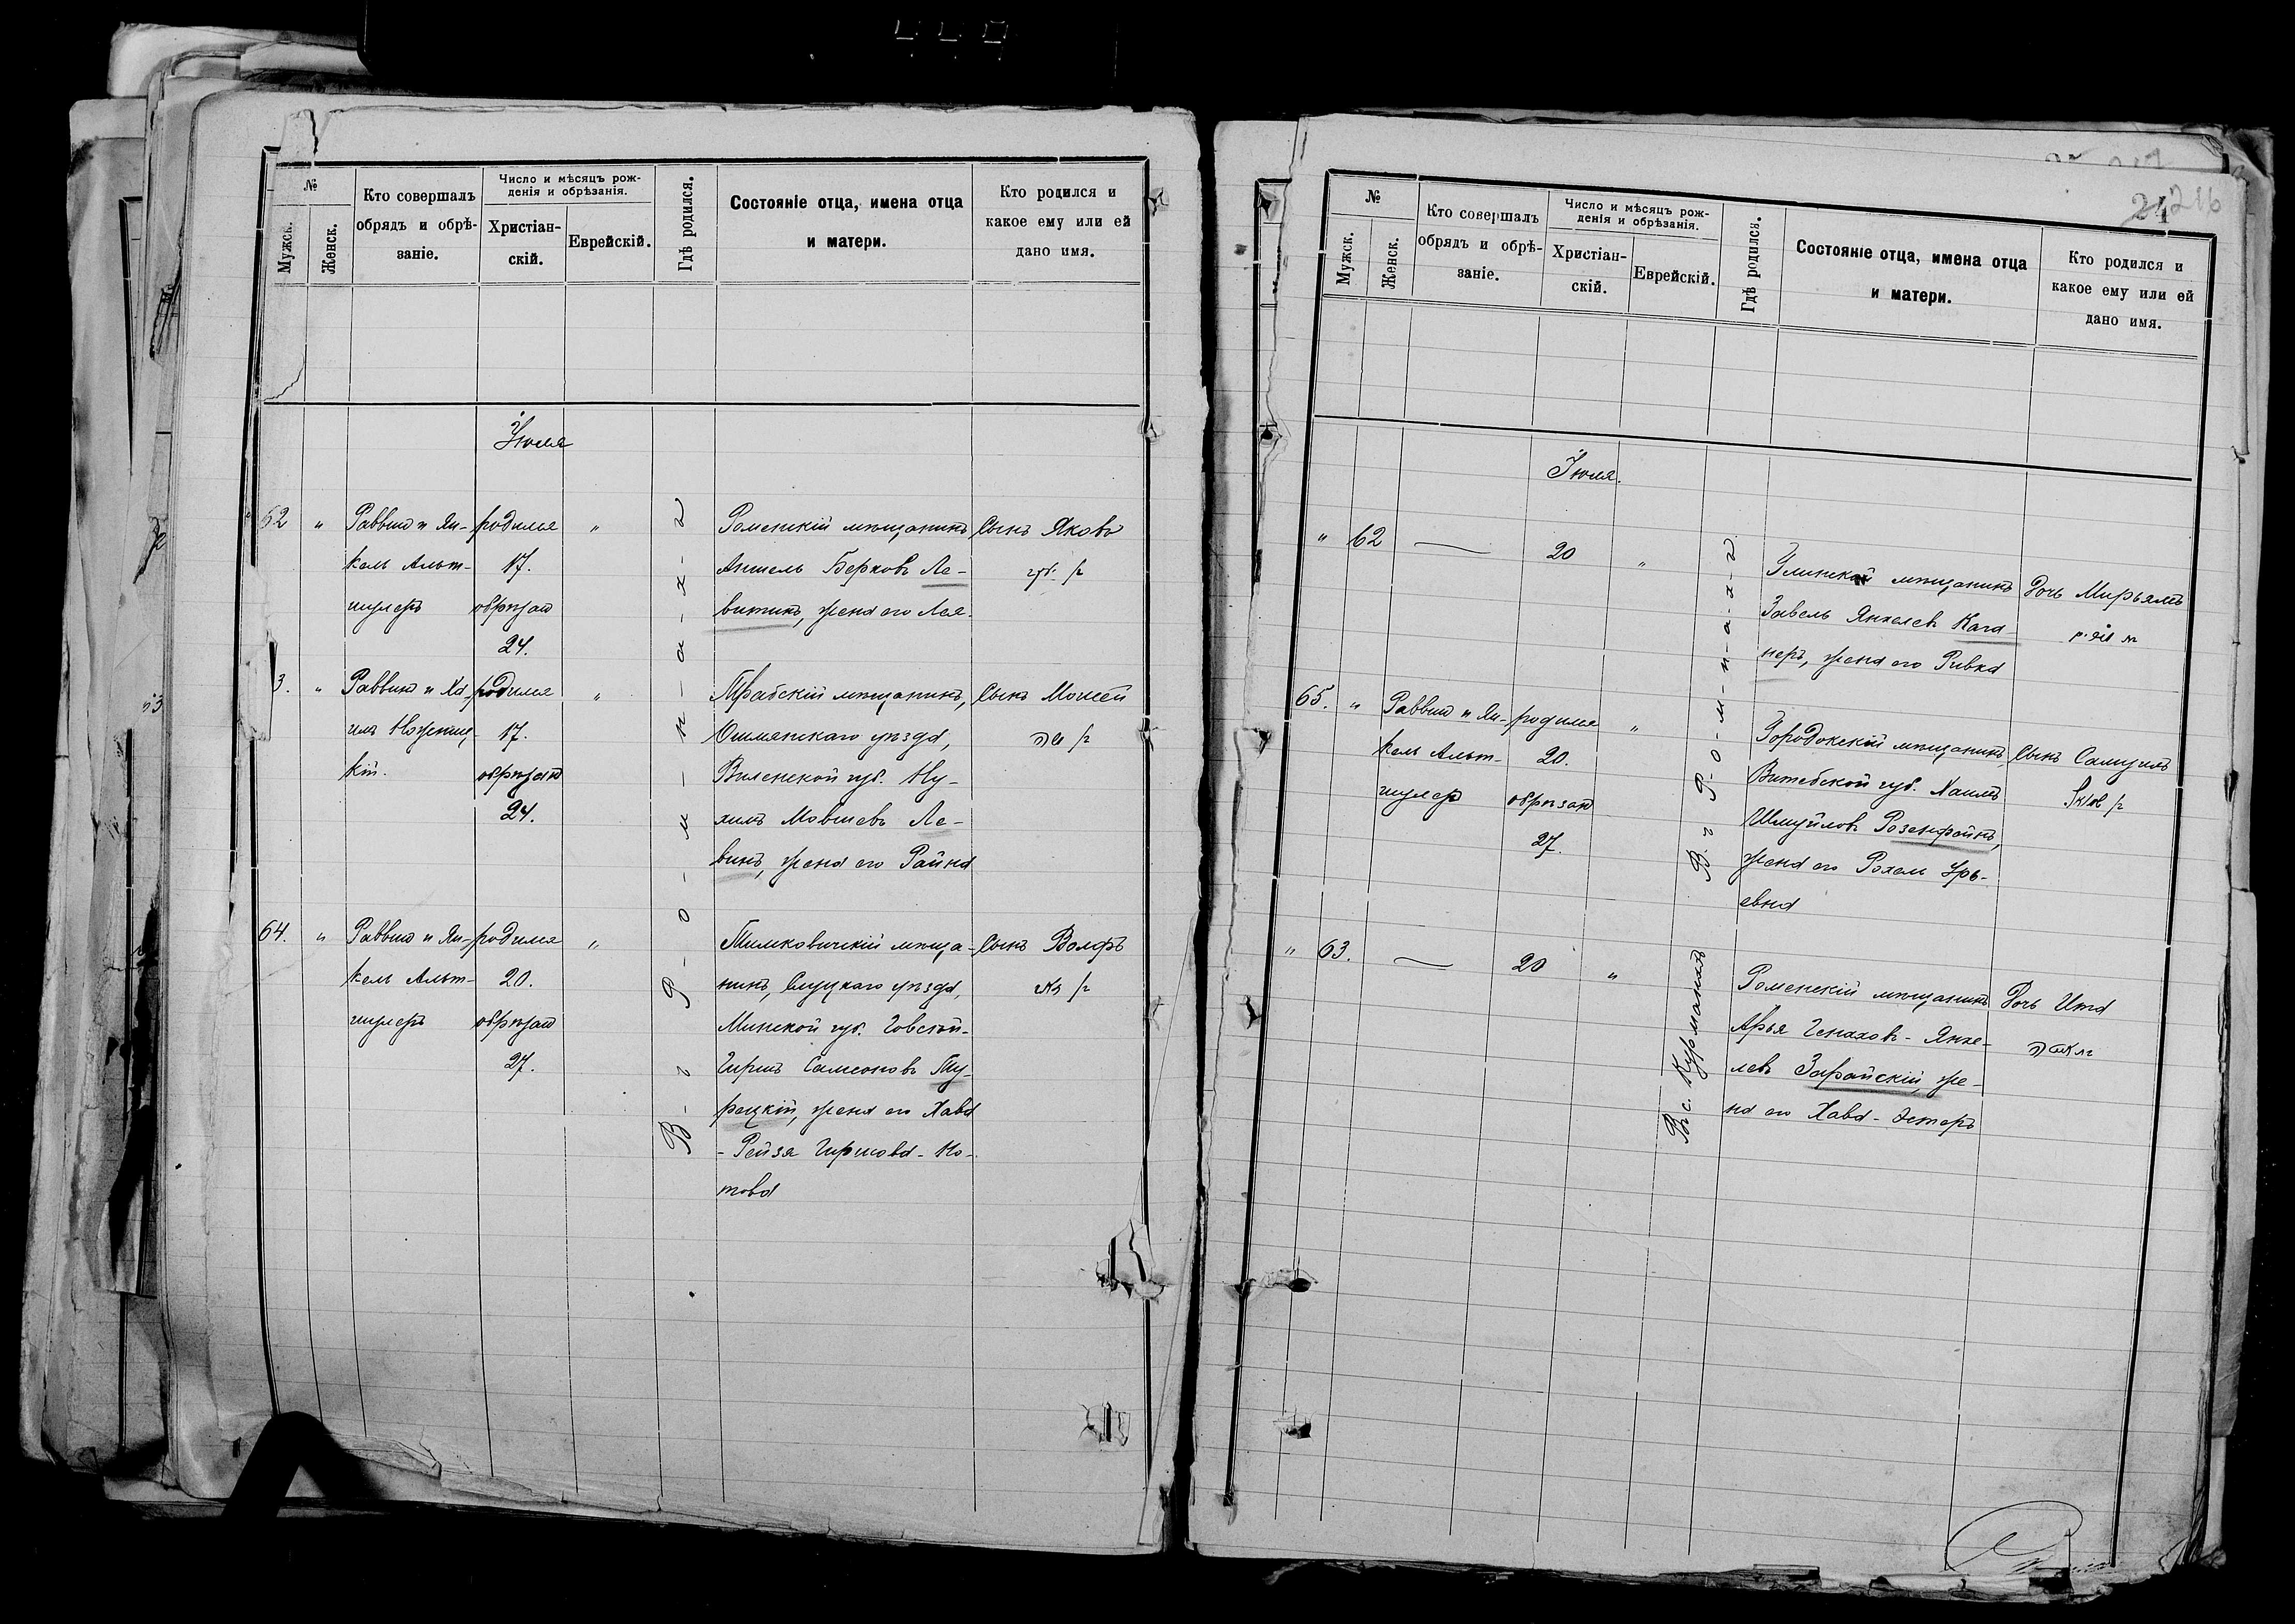 №
Мужск.
Женск.
Кто совершалъ
обрядъ и обрѣ-
заніе.
Число и мѣсяцъ рож-
денія и обрѣзанія.
Христіан-
скій.
Еврейскій.
Гдѣ родился.
Состояніе отца, имена отца
и матери.
Кто родился и
какое ему или ей
дано имя.
Іюля
62 " Раввинъ и Ян-
кель Альт-
шулеръ
родился
17.
обрѣзанъ
24.
"
Роменскій мѣщанинъ
Аншель Берковъ Ле-
витинъ, жена его Лея.
Сынъ Яковъ
3. " Раввинъ и Ха-
кій.
родился
17.
обрѣзанъ
24.
"
мѣщанинъ,
Ошмянскаго уѣзда,
Виленской губ. Ну-
химъ Мовшевъ Ле-
винъ, жена его Райна
Сынъ Моисей
64. " Раввинъ и Ян-
кель Альт-
шулеръ
родился
20.
обрѣзанъ
27.
"
Тимковичскій мѣща-
нинъ, Слуцкаго уѣзда,
Минской губ. Говсей-
Гиршъ Самсоновъ Ту-
рецкій, жена его Хава
- Рейзя Гиршова-Но-
това
Сынъ Волфъ
В-г Р-о-м-н-а-х-ъ
24 216
№
Мужск.
Женск.
Кто совершалъ
обрядъ и обрѣ-
заніе.
Число и мѣсяцъ рож-
денія и обрѣзанія.
Христіан-
скій.
Еврейскій.
Гдѣ родился.
Состояніе отца, имена отца
и матери.
Кто родился и
какое ему или ей
дано имя.
Іюля.
" 62 — 20 "
мѣщанинъ
Завель Янкелевъ Кага-
неръ, жена его Ривка
Дочь Мирьямъ
65. " Раввинъ и Ян-
кель Альт-
шулеръ
родился
20.
обрѣзанъ
27.
"
Городокскій мѣщанинъ
Витебской губ. Хаимъ
Шмуйловъ Розенфейнъ,
жена его Рохель Урь-
евна
Сынъ Самуилъ
В. г Р-о-м-н-а-х-ъ
" 63. — 20 "
Въ с. Курманахъ
Роменскій мѣщанинъ
Арья Генахов-Янке-
левъ Зарайскій, же-
на его Хава-Эстеръ
Дочь Ита